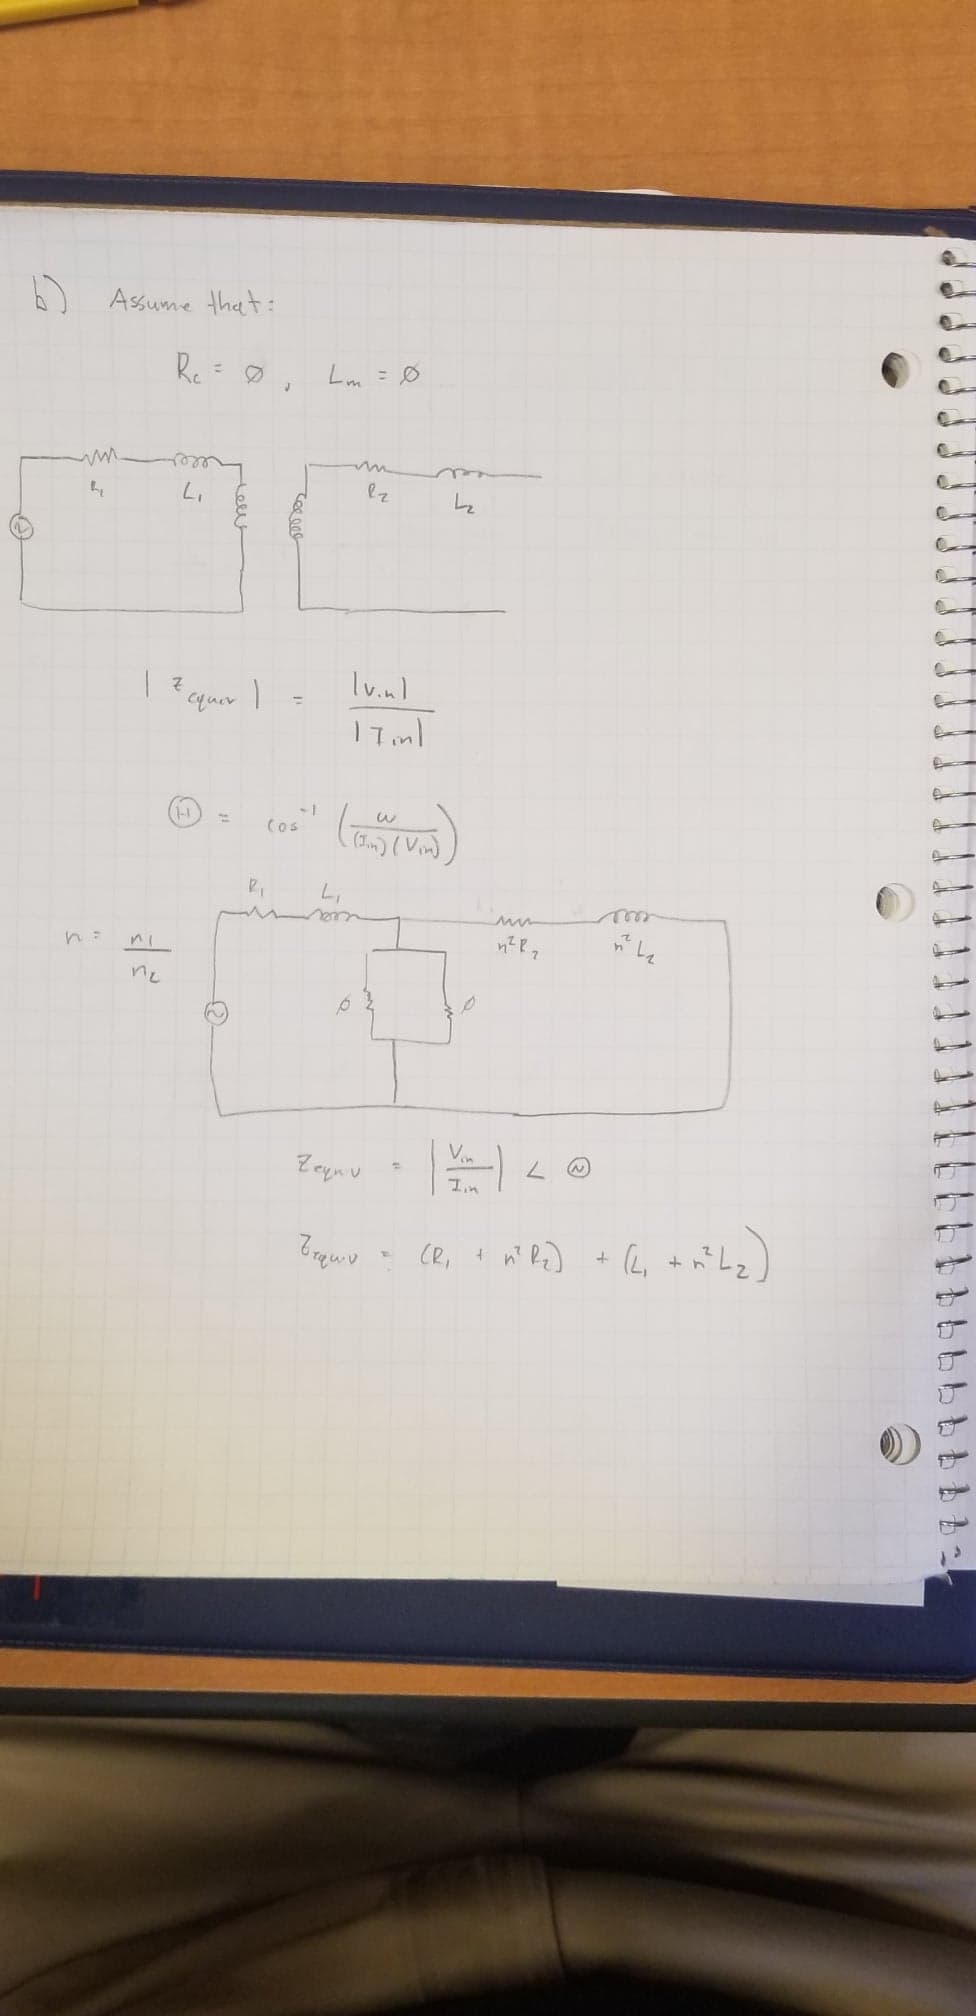 b) Assume that:
Rc = ∅ , Lm = ∅
R1 L1 R2 L2
| Zequiv | = |Vin| / |Iin|
Ⓗ = cos⁻¹ ( W / (Iin) (Vin) )
R1 L1
n²R2 n²L2
n = n1 / n2
∅ ∅
Zequiv = | Vin / Iin | <
Zequiv = (R1 + n² R2) + (L1 + n² L2)